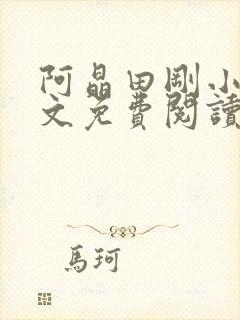 阿晶田剛小
文免費閱讀
馬珂